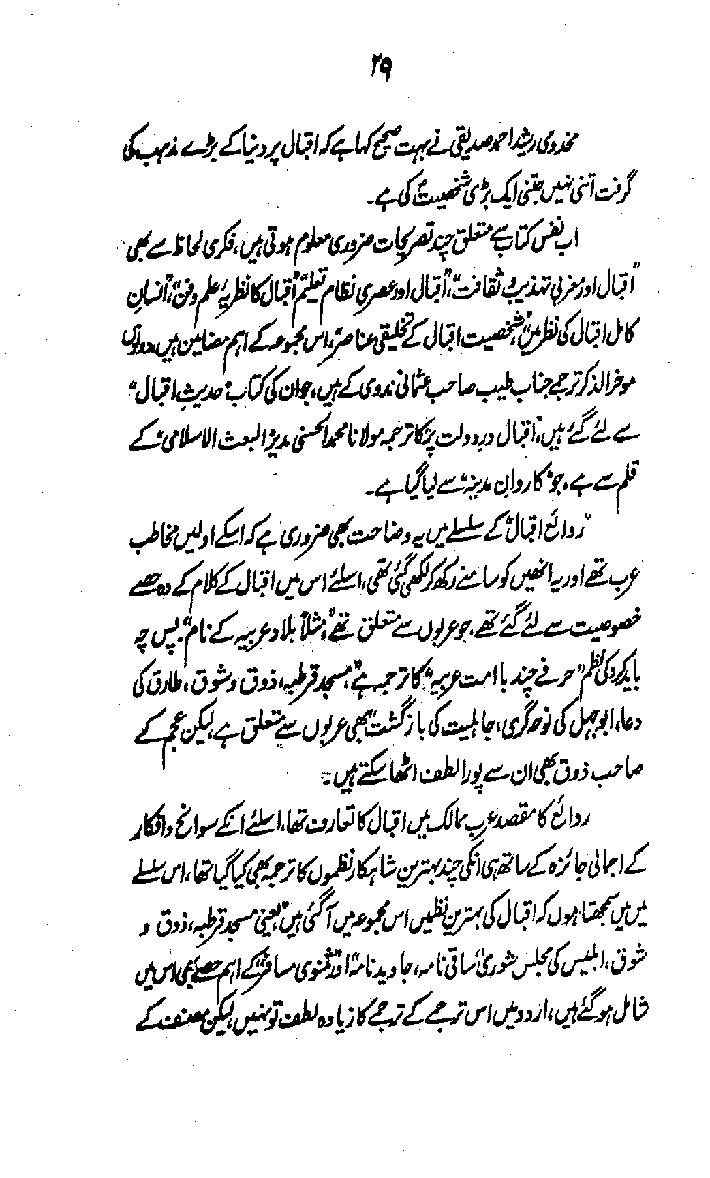 ۲۹
مخدومی رشید احمد صدیقی نے بہت صحیح کہا ہے کہ اقبال پر دنیا کے بڑے مذہب کی
گرفت اتنی نہیں جتنی ایک بڑی شخصیت کی ہے۔
اب نفس کتاب سے متعلق چند تصریحات ضروری معلوم ہوتی ہیں، فکری لحاظ سے بھی
"اقبال اور مغربی تہذیب و ثقافت"، "اقبال اور عصری نظام تعلیم"، "اقبال کا نظریۂ علم و فن"، "انسانِ
کامل اقبال کی نظر میں"، "شخصیت اقبال کے تخلیقی عناصر"، اس مجموعہ کے اہم مضامین ہیں،
موخر الذکر ترجمے جناب طیب صاحب عثمانی ندوی کے ہیں، جو ان کی کتاب "حدیثِ اقبال"
سے لئے گئے ہیں، "اقبال در دولت پر" کا ترجمہ مولانا محمد الحسنی مدیر "البعث الاسلامی" کے
قلم سے ہے، جو "کاروانِ مدینہ" سے لیا گیا ہے۔
"روائع اقبال" کے سلسلے میں یہ وضاحت بھی ضروری ہے کہ اسکے اولیں مخاطب
عرب تھے اور یہ انھیں کو سامنے رکھ کر لکھی گئی تھی، اسلئے اس میں اقبال کے کلام کے وہ حصے
خصوصیت سے لئے گئے تھے، جو عربوں سے متعلق تھے، مثلاً "بلاد عربیہ کے نام" "پس چہ
باید کرد" کی نظم "حرفے چند با امت عربیہ" کا ترجمہ ہے، "مسجد قرطبہ، ذوق و شوق، طارق کی
دعا، ابوجہل کی نوحہ گری، جاہلیت کی بازگشت" بھی عربوں سے متعلق ہے، لیکن عجم کے
صاحب ذوق بھی ان سے پورا لطف اٹھا سکتے ہیں۔
روائع کا مقصد عرب ممالک میں اقبال کا تعارف تھا، اسلئے انکے سوانح و افکار
کے اجمالی جائزہ کے ساتھ ہی انکی چند بہترین شاہکار نظموں کا ترجمہ بھی کیا گیا تھا، اس سلسلے
میں میں سمجھتا ہوں کہ اقبال کی بہترین نظمیں اس مجموعہ میں آگئی ہیں، یعنی مسجد قرطبہ، ذوق و
شوق، ابلیس کی مجلس شوریٰ، ساقی نامہ، جاوید نامہ اور مثنوی مسافر کے اہم حصے بھی اس میں
شامل ہو گئے ہیں، اردو میں اس ترجمے کے ترجمے کا زیادہ لطف تو نہیں، لیکن مصنف کے